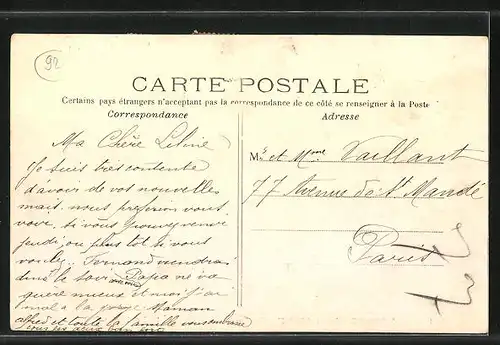 92
CARTE POSTALE
Certains pays étrangers n'acceptant pas la correspondance de ce côté se renseigner à la Poste
Correspondance
Ma Chère
Je suis très contente
d'avoir de vos nouvelles
mais nous vous
voir, si vous
ou plus tôt si vous
voulez. Fernand viendra
dans le Papa ne va
guère mieux et moi j'ai
mal à la Maman
alfred et toute la famille vous embrasse
Adresse
Mr et Mme Vaillant
77 Avenue de St Mandé
Paris